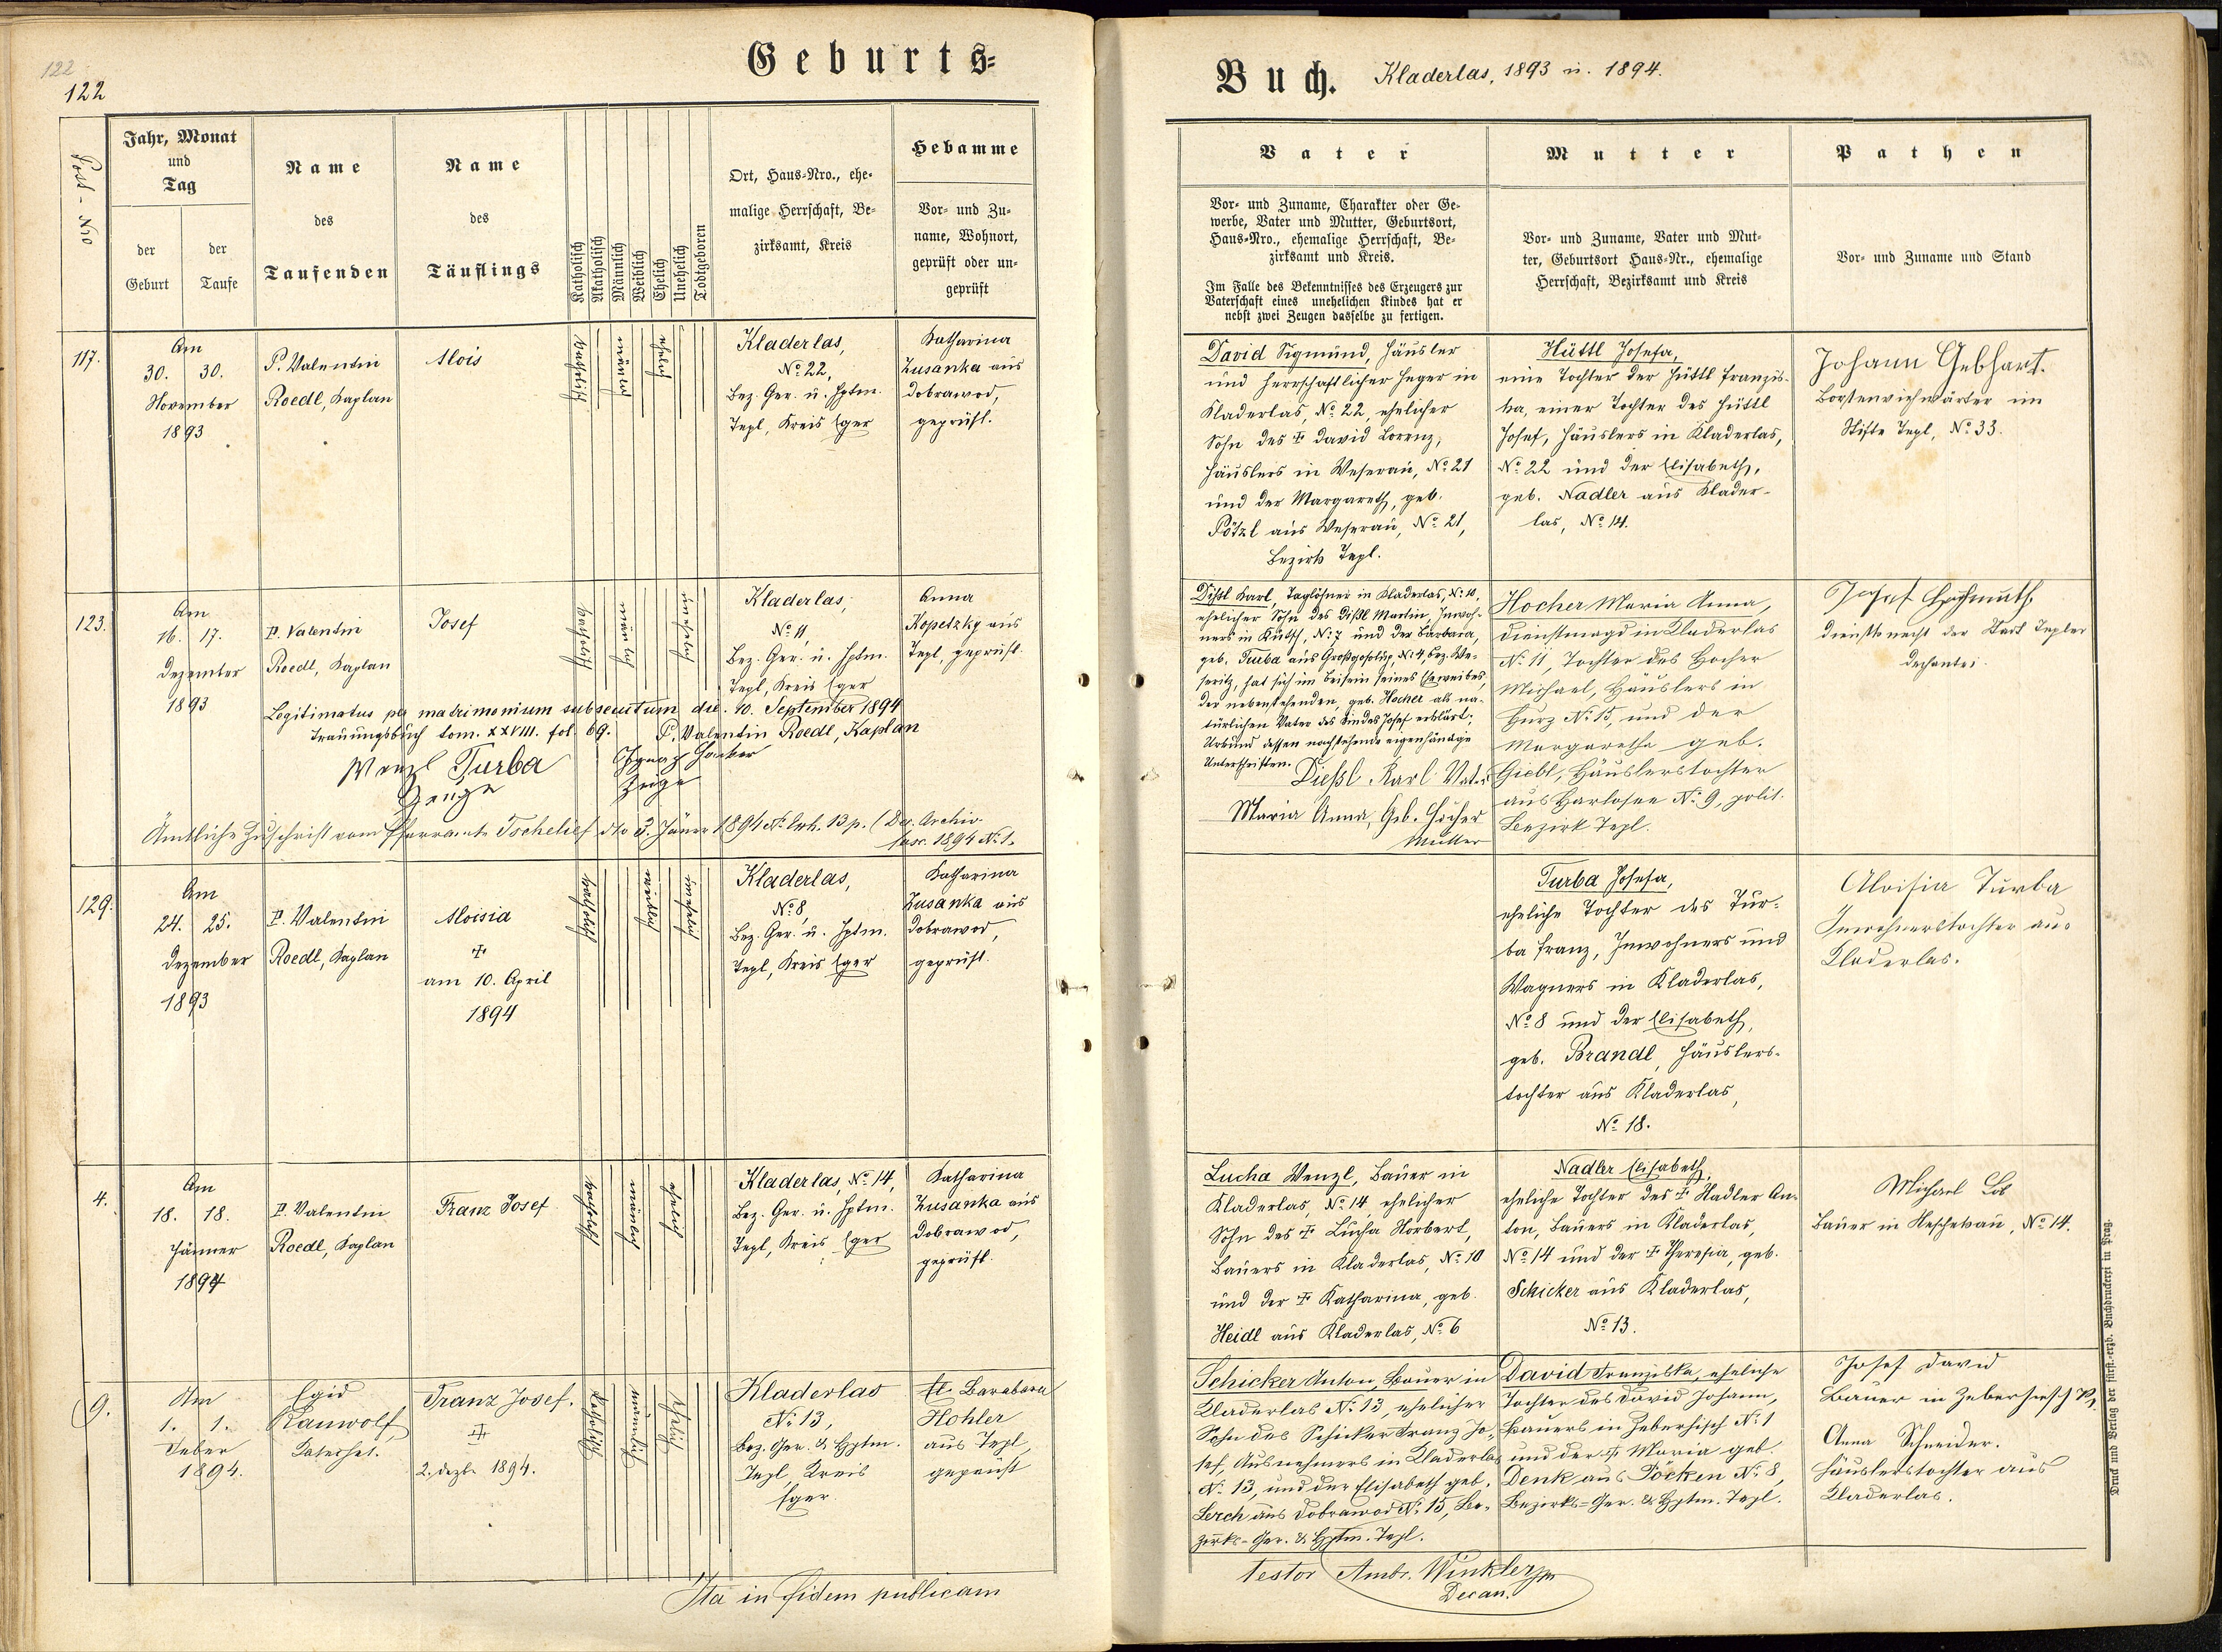 122
122
Geburts-
Buch. Kladerlas, 1893 u. 1894.
Post-Nro
Jahr, Monat
und
Tag
der
Geburt
der
Taufe
Name
des
Taufenden
Name
des
Täuflings
Katholisch
Akatholisch
Männlich
Weiblich
Ehelich
Unehelich
Todtgeboren
Ort, Haus-Nro., ehe-
malige Herrschaft, Be-
zirksamt, Kreis
Hebamme
Vor- und Zu-
name, Wohnort,
geprüft oder un-
geprüft
Vater
Vor- und Zuname, Charakter oder Ge-
werbe, Vater und Mutter, Geburtsort,
Haus-Nro., ehemalige Herrschaft, Be-
zirksamt und Kreis.
Im Falle des Bekenntnisses des Erzeugers zur
Vaterschaft eines unehelichen Kindes hat er
nebst zwei Zeugen dasselbe zu fertigen.
Mutter
Vor- und Zuname, Vater und Mut-
ter, Geburtsort Haus-Nr., ehemalige
Herrschaft, Bezirksamt und Kreis
Pathen
Vor- und Zuname und Stand
117.
Am
30. 30.
November
1893
P. Valentin
Roedl, Kaplan
Alois
katholisch
männlich
ehelich
Kladerlas,
No 22,
Bez. Ger. u. Hptm.
Tepl, Kreis Eger
Katharina
Zusanka aus
Dobrawod,
geprüft.
David Sigmund, Häusler
und herrschaftlicher Heger in
Kladerlas, No 22, ehelicher
Sohn des ☩ David Lorenz,
Häuslers in Weserau, No 21
und der Margareth, geb.
Pötzl aus Weserau, No 21,
Bezirk Tepl.
Hüttl Josefa,
eine Tochter der Hüttl Franzis-
ka, einer Tochter des Hüttl
Josef, Häuslers in Kladerlas,
No 22 und der Elisabeth,
geb. Nadler aus Klader-
las, No 14.
Johann Gebhart.
Borstenviehwärter im
Stifte Tepl, No 33.
123.
Am
16. 17.
Dezember
1893
P. Valentin
Roedl, Kaplan
Josef
katholisch
männlich
unehelich
Kladerlas,
No 11
Bez. Ger. u. Hptm.
Tepl, Kreis Eger
Anna
Kopetzky aus
Tepl, geprüft.
Legitimatus per matrimonium subsecutum die. 10. September 1894
Trauungsbuch tom. XXVIII. fol. 69. P. Valentin Roedl, Kaplan
Wenzl Turba
Zeuge
Ignaz Hacker
Zeuge
Ämtliche Zuschrift vom Pfarramte Tschelief dto 3. Jäner 1894 No Exh. 13 p. (Dec. Archiv
fasc. 1894 No 1.
Dißl Karl, Taglöhner in Kladerlas, No 10,
ehelicher Sohn des Dißl Martin, Inwoh-
ners in Kuttch, No 7 und der Barbara,
geb. Turba aus Großgosolup, No 4, Bez. We-
seritz, hat sich im Beisein seines Eheweibes,
der nebenstehenden, geb. Hocher als na-
türlichen Vater des Kindes Josef erklärt;
Urkund dessen nachstehende eigenhändige
Unterschriften.
Dießl Karl Vater
Maria Anna, Geb. Hocher
Mutter
Hocher Maria Anna,
Dienstmagd in Kladerlas
No 11, Tochter des Hocher
Michael, Häuslers in
Hurz No 15, und der
Margaretha geb.
Giebl, Häuslerstochter
aus Harlosee No 9, polit.
Bezirk Tepl.
Josef
Dienstknecht der Stadt Tepler
Dechantei.
129.
Am
24. 25.
Dezember
1893
P. Valentin
Roedl, Kaplan
Aloisia
☩
am 10. April
1894
katholisch
weiblich
unehelich
Kladerlas,
No 8,
Bez. Ger. u. Hptm.
Tepl, Kreis Eger
Katharina
Zusanka aus
Dobrawod,
geprüft.
Turba Josefa,
eheliche Tochter des Tur-
ba Franz, Inwohners und
Wagners in Kladerlas,
No 8 und der Elisabeth,
geb. Brandl, Häuslers-
tochter aus Kladerlas,
No 18.
Aloisia Turba
Inwohnerstochter aus
Kladerlas.
4.
Am
18. 18.
Jänner
1894
P. Valentin
Roedl, Kaplan
Franz Josef
katholisch
männlich
ehelich
Kladerlas, No 14,
Bez. Ger. u. Hptm.
Tepl, Kreis Eger
Katharina
Zusanka aus
Dobrawod,
geprüft.
Lucha Wenzl, Bauer in
Kladerlas, No 14, ehelicher
Sohn des ☩ Lucha Norbert,
Bauers in Kladerlas, No 10
und der ☩ Katharina, geb.
Heidl aus Kladerlas, No 6
Nadler Elisabeth,
eheliche Tochter des ☩ Nadler An-
ton, Bauers in Kladerlas,
No 14 und der ☩ Theresia, geb.
Schicker aus Kladerlas,
No 13.
Michael
Bauer in Neschekau, No 14.
9.
Am
1. 1.
Feber
1894.
Egid
Rauwolf
Catechet.
Franz Josef.
☩
2. Dezbr 1894.
katholisch
männlich
ehelich
Kladerlas
No 13,
Bez. Ger. & Hptm.
Tepl, Kreis
Eger.
Barabara
Hohler
aus Tepl,
geprüft
Schicker Anton, Bauer in
Kladerlas No 13, ehelicher
Sohn des Schicker Franz Jo-
sef, Ausnehmers in Kladerlas
No 13, und der Elisabeth geb.
Lerch aus Dobrawod No 15, Be-
zirks-Ger. & Hptm. Tepl.
David Franziska, eheliche
Tochter des David Johann,
Bauers in Zeberhisch No 1
und der ☩ Maria geb.
Denk aus Pöcken No 8,
Bezirks-Ger. & Hptm. Tepl.
Josef David
Bauer in Zeberhisch No 1.
Anna Schneider.
Häuslerstochter aus
Kladerlas.
Ita in fidem publicam
testor Ambr. Winkler
Decan.
Druck und Verlag der fürst.-erzb. Buchdruckerei in Prag.